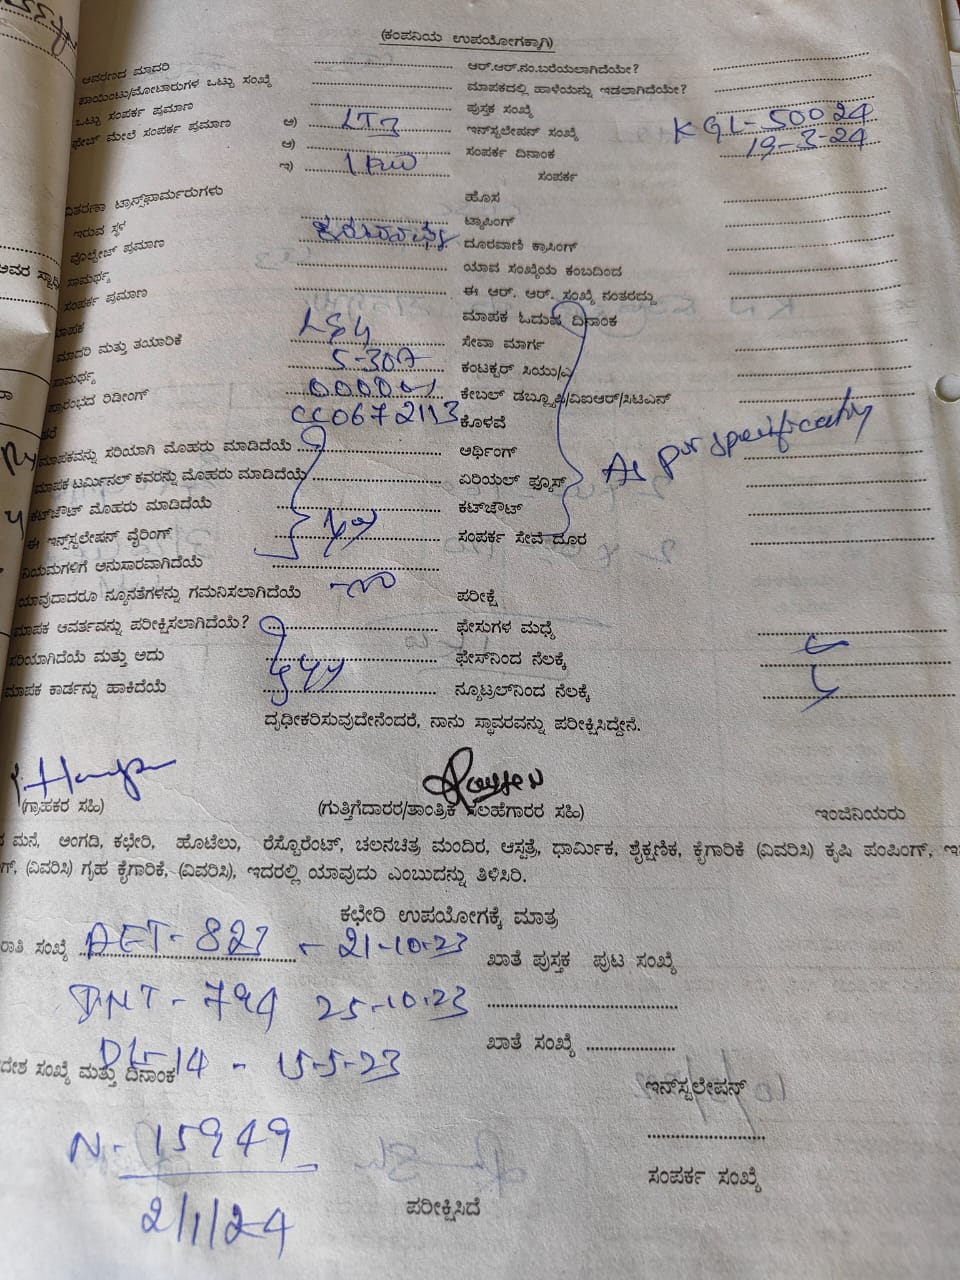 (ಕಂಪನಿಯ ಉಪಯೋಗಕ್ಕಾಗಿ)
ಆವರಣದ ಮಾದರಿ ಆರ್.ಆರ್.ನಂ.ಬರೆಯಲಾಗಿದೆಯೇ?
ಪಾಯಿಂಟು/ಮೋಟಾರುಗಳ ಒಟ್ಟು ಸಂಖ್ಯೆ ಮಾಪಕದಲ್ಲಿ ಹಾಳೆಯನ್ನು ಇಡಲಾಗಿದೆಯೇ?
ಒಟ್ಟು ಸಂಪರ್ಕ ಪ್ರಮಾಣ ಪುಸ್ತಕ ಸಂಖ್ಯೆ
ಫೇಜ್ ಮೇಲೆ ಸಂಪರ್ಕ ಪ್ರಮಾಣ ಅ) LT3 ಇನ್‌ಸ್ಟಲೇಷನ್ ಸಂಖ್ಯೆ KGL-50024
ಆ) ಸಂಪರ್ಕ ದಿನಾಂಕ 19-3-24
ಇ) 1KW ಸಂಪರ್ಕ
ವಿತರಣಾ ಟ್ರಾನ್ಸ್‌ಫಾರ್ಮರುಗಳು ಹೊಸ
ಇರುವ ಸ್ಥಳ ಟ್ಯಾಪಿಂಗ್
ವೋಲ್ಟೇಜ್ ಪ್ರಮಾಣ ದೂರವಾಣಿ ಕ್ರಾಸಿಂಗ್
ಸಾಮರ್ಥ್ಯ ಯಾವ ಸಂಖ್ಯೆಯ ಕಂಬದಿಂದ
ಸಂಪರ್ಕ ಪ್ರಮಾಣ ಈ ಆರ್. ಆರ್. ಸಂಖ್ಯೆ ನಂತರದ್ದು
ಮಾಪಕ ಮಾಪಕ ಓದುವ ದಿನಾಂಕ
ಮಾದರಿ ಮತ್ತು ತಯಾರಿಕೆ ಸೇವಾ ಮಾರ್ಗ
ಸಾಮರ್ಥ್ಯ 5-30A ಕಂಟಕ್ಟರ್ ಸಿಯು/ಎ
ಪ್ರಾರಂಭದ ರಿಡಿಂಗ್ 000001 ಕೇಬಲ್ ಡಬ್ಲ್ಯೂಪಿ/ವಿಐಆರ್/ಸಿಟಿಎಸ್
CC0672113 ಕೊಳವೆ
ಮಾಪಕವನ್ನು ಸರಿಯಾಗಿ ಮೊಹರು ಮಾಡಿದೆಯೆ ಅರ್ಥಿಂಗ್ As per
ಮಾಪಕ ಟರ್ಮಿನಲ್ ಕವರನ್ನು ಮೊಹರು ಮಾಡಿದೆಯೆ ಏರಿಯಲ್ ಫ್ಯೂಸ್
ಕಟ್‌ಔಟ್ ಮೊಹರು ಮಾಡಿದೆಯೆ ಕಟ್‌ಔಟ್
ಈ ಇನ್ಸ್‌ಸ್ಟಲೇಷನ್ ವೈರಿಂಗ್ ಸಂಪರ್ಕ ಸೇವೆ ದೂರ
ನಿಯಮಗಳಿಗೆ ಅನುಸಾರವಾಗಿದೆಯೆ
ಯಾವುದಾದರೂ ನ್ಯೂನತೆಗಳನ್ನು ಗಮನಿಸಲಾಗಿದೆಯೆ ಪರೀಕ್ಷೆ
ಮಾಪಕ ಆವರ್ತವನ್ನು ಪರೀಕ್ಷಿಸಲಾಗಿದೆಯೆ? ಫೇಸುಗಳ ಮಧ್ಯೆ
ಸರಿಯಾಗಿದೆಯೆ ಮತ್ತು ಅದು ಫೇಸ್‌ನಿಂದ ನೆಲಕ್ಕೆ
ಮಾಪಕ ಕಾರ್ಡನ್ನು ಹಾಕಿದೆಯೆ ನ್ಯೂಟ್ರಲ್‌ನಿಂದ ನೆಲಕ್ಕೆ
ದೃಢೀಕರಿಸುವುದೇನೆಂದರೆ, ನಾನು ಸ್ಥಾವರವನ್ನು ಪರೀಕ್ಷಿಸಿದ್ದೇನೆ.
(ಗ್ರಾಹಕರ ಸಹಿ) (ಗುತ್ತಿಗೆದಾರರ/ತಾಂತ್ರಿಕ ಸಲಹೆಗಾರರ ಸಹಿ) ಇಂಜಿನಿಯರು
ಮನೆ, ಅಂಗಡಿ, ಕಛೇರಿ, ಹೊಟೆಲು, ರೆಸ್ಟೊರೆಂಟ್, ಚಲನಚಿತ್ರ ಮಂದಿರ, ಆಸ್ಪತ್ರೆ, ಧಾರ್ಮಿಕ, ಶೈಕ್ಷಣಿಕ, ಕೈಗಾರಿಕೆ (ವಿವರಿಸಿ) ಕೃಷಿ ಪಂಪಿಂಗ್,
(ವಿವರಿಸಿ) ಗೃಹ ಕೈಗಾರಿಕೆ, (ವಿವರಿಸಿ), ಇದರಲ್ಲಿ ಯಾವುದು ಎಂಬುದನ್ನು ತಿಳಿಸಿರಿ.
ಕಛೇರಿ ಉಪಯೋಗಕ್ಕೆ ಮಾತ್ರ
ಸಂಖ್ಯೆ AET-823 - 21-10-23 ಖಾತೆ ಪುಸ್ತಕ ಪುಟ ಸಂಖ್ಯೆ
794 25-10-23
ಖಾತೆ ಸಂಖ್ಯೆ
ಸಂಖ್ಯೆ ಮತ್ತು ದಿನಾಂಕ DL-14 - 15-5-23
ಇನ್‌ಸ್ಟಲೇಷನ್
N-15949
ಸಂಪರ್ಕ ಸಂಖ್ಯೆ
2/1/24 ಪರೀಕ್ಷಿಸಿದೆ